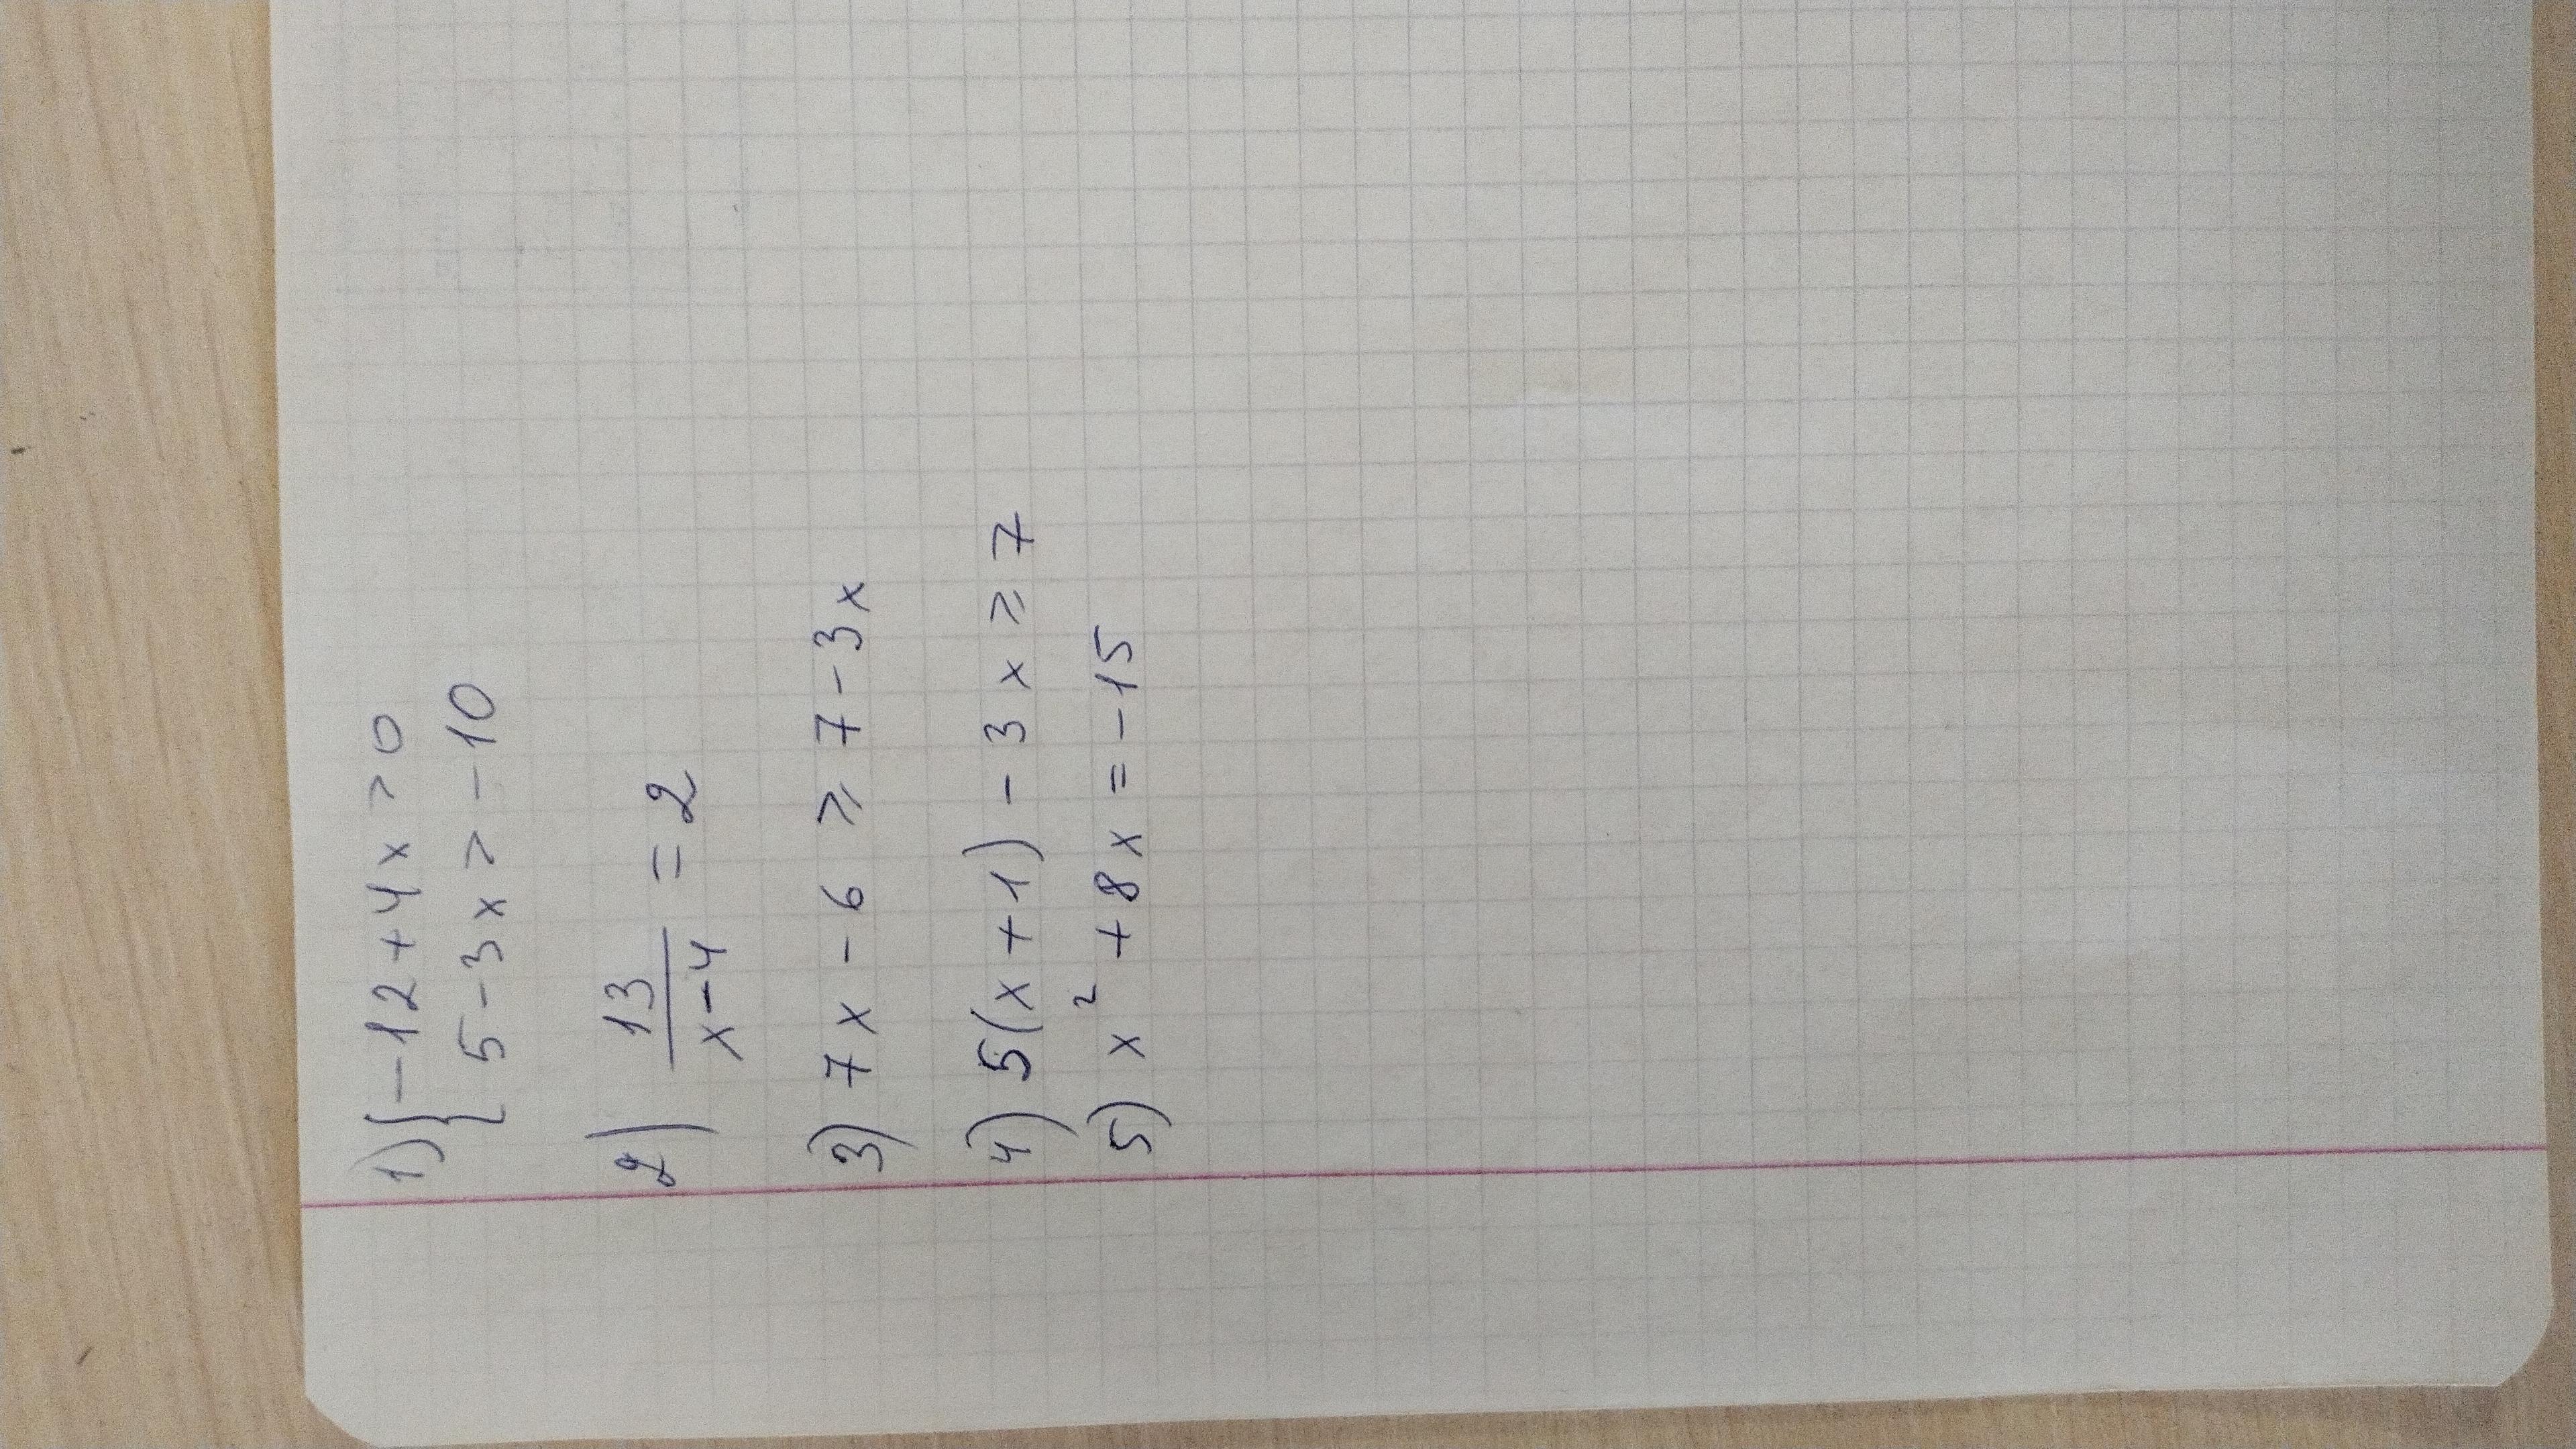 1) { -12 + 4x > 0
5 - 3x > -10
2) 13/(x-4) = 2
3) 7x - 6 ⩾ 7 - 3x
4) 5(x + 1) - 3x ⩾ 7
5) x² + 8x = -15